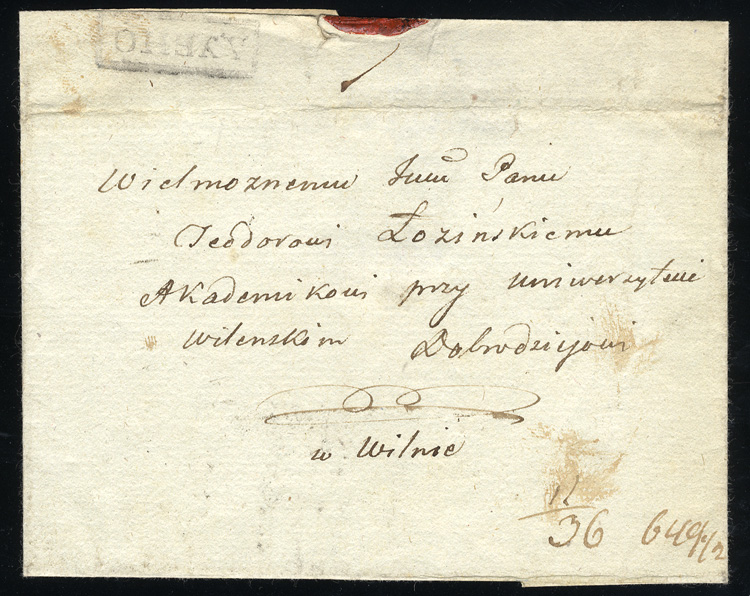 Wielmoznemu Jmu Panu
Teodorowi Łozińskiemu
Akademikowi przy Uniwerzytecie
Wilenskim Dobrodziejowi
w Wilnie
36 649 1/2